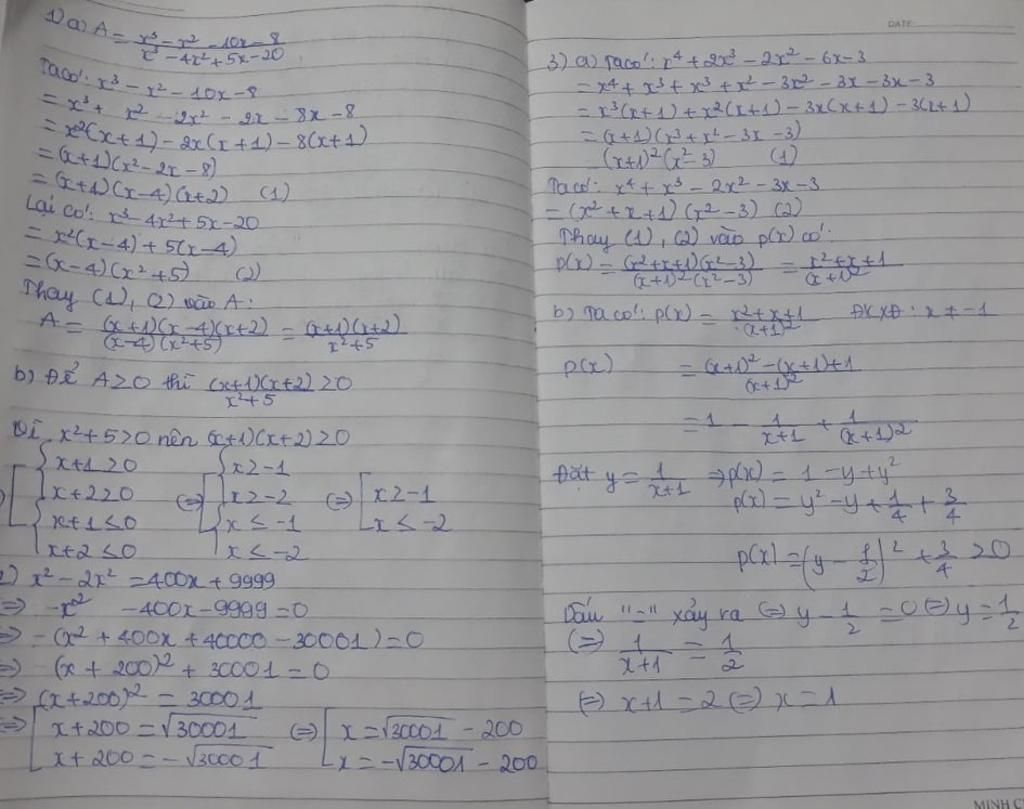 1) a) A = (x³ - x² - 10x - 8)/(x³ - 4x² + 5x - 20)
Ta có: x³ - x² - 10x - 8
= x³ + x² - 2x² - 2x - 8x - 8
= x²(x+1) - 2x(x+1) - 8(x+1)
= (x+1)(x² - 2x - 8)
= (x+1)(x-4)(x+2) (1)
Lại có: x³ - 4x² + 5x - 20
= x²(x-4) + 5(x-4)
= (x-4)(x²+5) (2)
Thay (1), (2) vào A:
A = (x+1)(x-4)(x+2)/(x-4)(x²+5) = (x+1)(x+2)/x²+5
b) Để A ≥ 0 thì (x+1)(x+2)/x²+5 ≥ 0
Vì x²+5 > 0 nên (x+1)(x+2) ≥ 0
[ { x+1 ≥ 0 (=) [ { x ≥ -1 (=) [ x ≥ -1
x+2 ≥ 0 x ≥ -2 x ≤ -2
{ x+1 ≤ 0 { x ≤ -1
x+2 ≤ 0 x ≤ -2
2) x² - 2x² = 400x + 9999
=> -x² - 400x - 9999 = 0
=> -(x² + 400x + 40000 - 30001) = 0
=> -(x + 200)² + 30001 = 0
=> (x+200)² = 30001
=> [ x+200 = √30001 (=) [ x = √30001 - 200
x+200 = -√30001 x = -√30001 - 200
DATE:
3) a) Ta có: x⁴ + 2x³ - 2x² - 6x - 3
= x⁴ + x³ + x³ + x² - 3x² - 3x - 3x - 3
= x³(x+1) + x²(x+1) - 3x(x+1) - 3(x+1)
= (x+1)(x³ + x² - 3x - 3)
(x+1)²(x² - 3) (1)
Ta có: x⁴ + x³ - 2x² - 3x - 3
= (x² + x + 1)(x² - 3) (2)
Thay (1), (2) vào p(x) có:
p(x) = (x²+x+1)(x²-3)/(x+1)²(x²-3) = x²+x+1/(x+1)²
b) Ta có: p(x) = x²+x+1/(x+1)² ĐKXĐ: x ≠ -1
p(x) = (x+1)² - (x+1) + 1/(x+1)²
= 1 - 1/x+1 + 1/(x+1)²
Đặt y = 1/x+1 => p(x) = 1 - y + y²
p(x) = y² - y + 1/4 + 3/4
p(x) = (y - 1/2)² + 3/4 > 0
Dấu "=" xảy ra (=) y - 1/2 = 0 (=) y = 1/2
(=) 1/x+1 = 1/2
(=) x+1 = 2 (=) x = 1